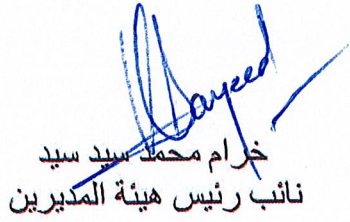 Sayeed
خرام محمد سيد سيد
نائب رئيس هيئة المديرين